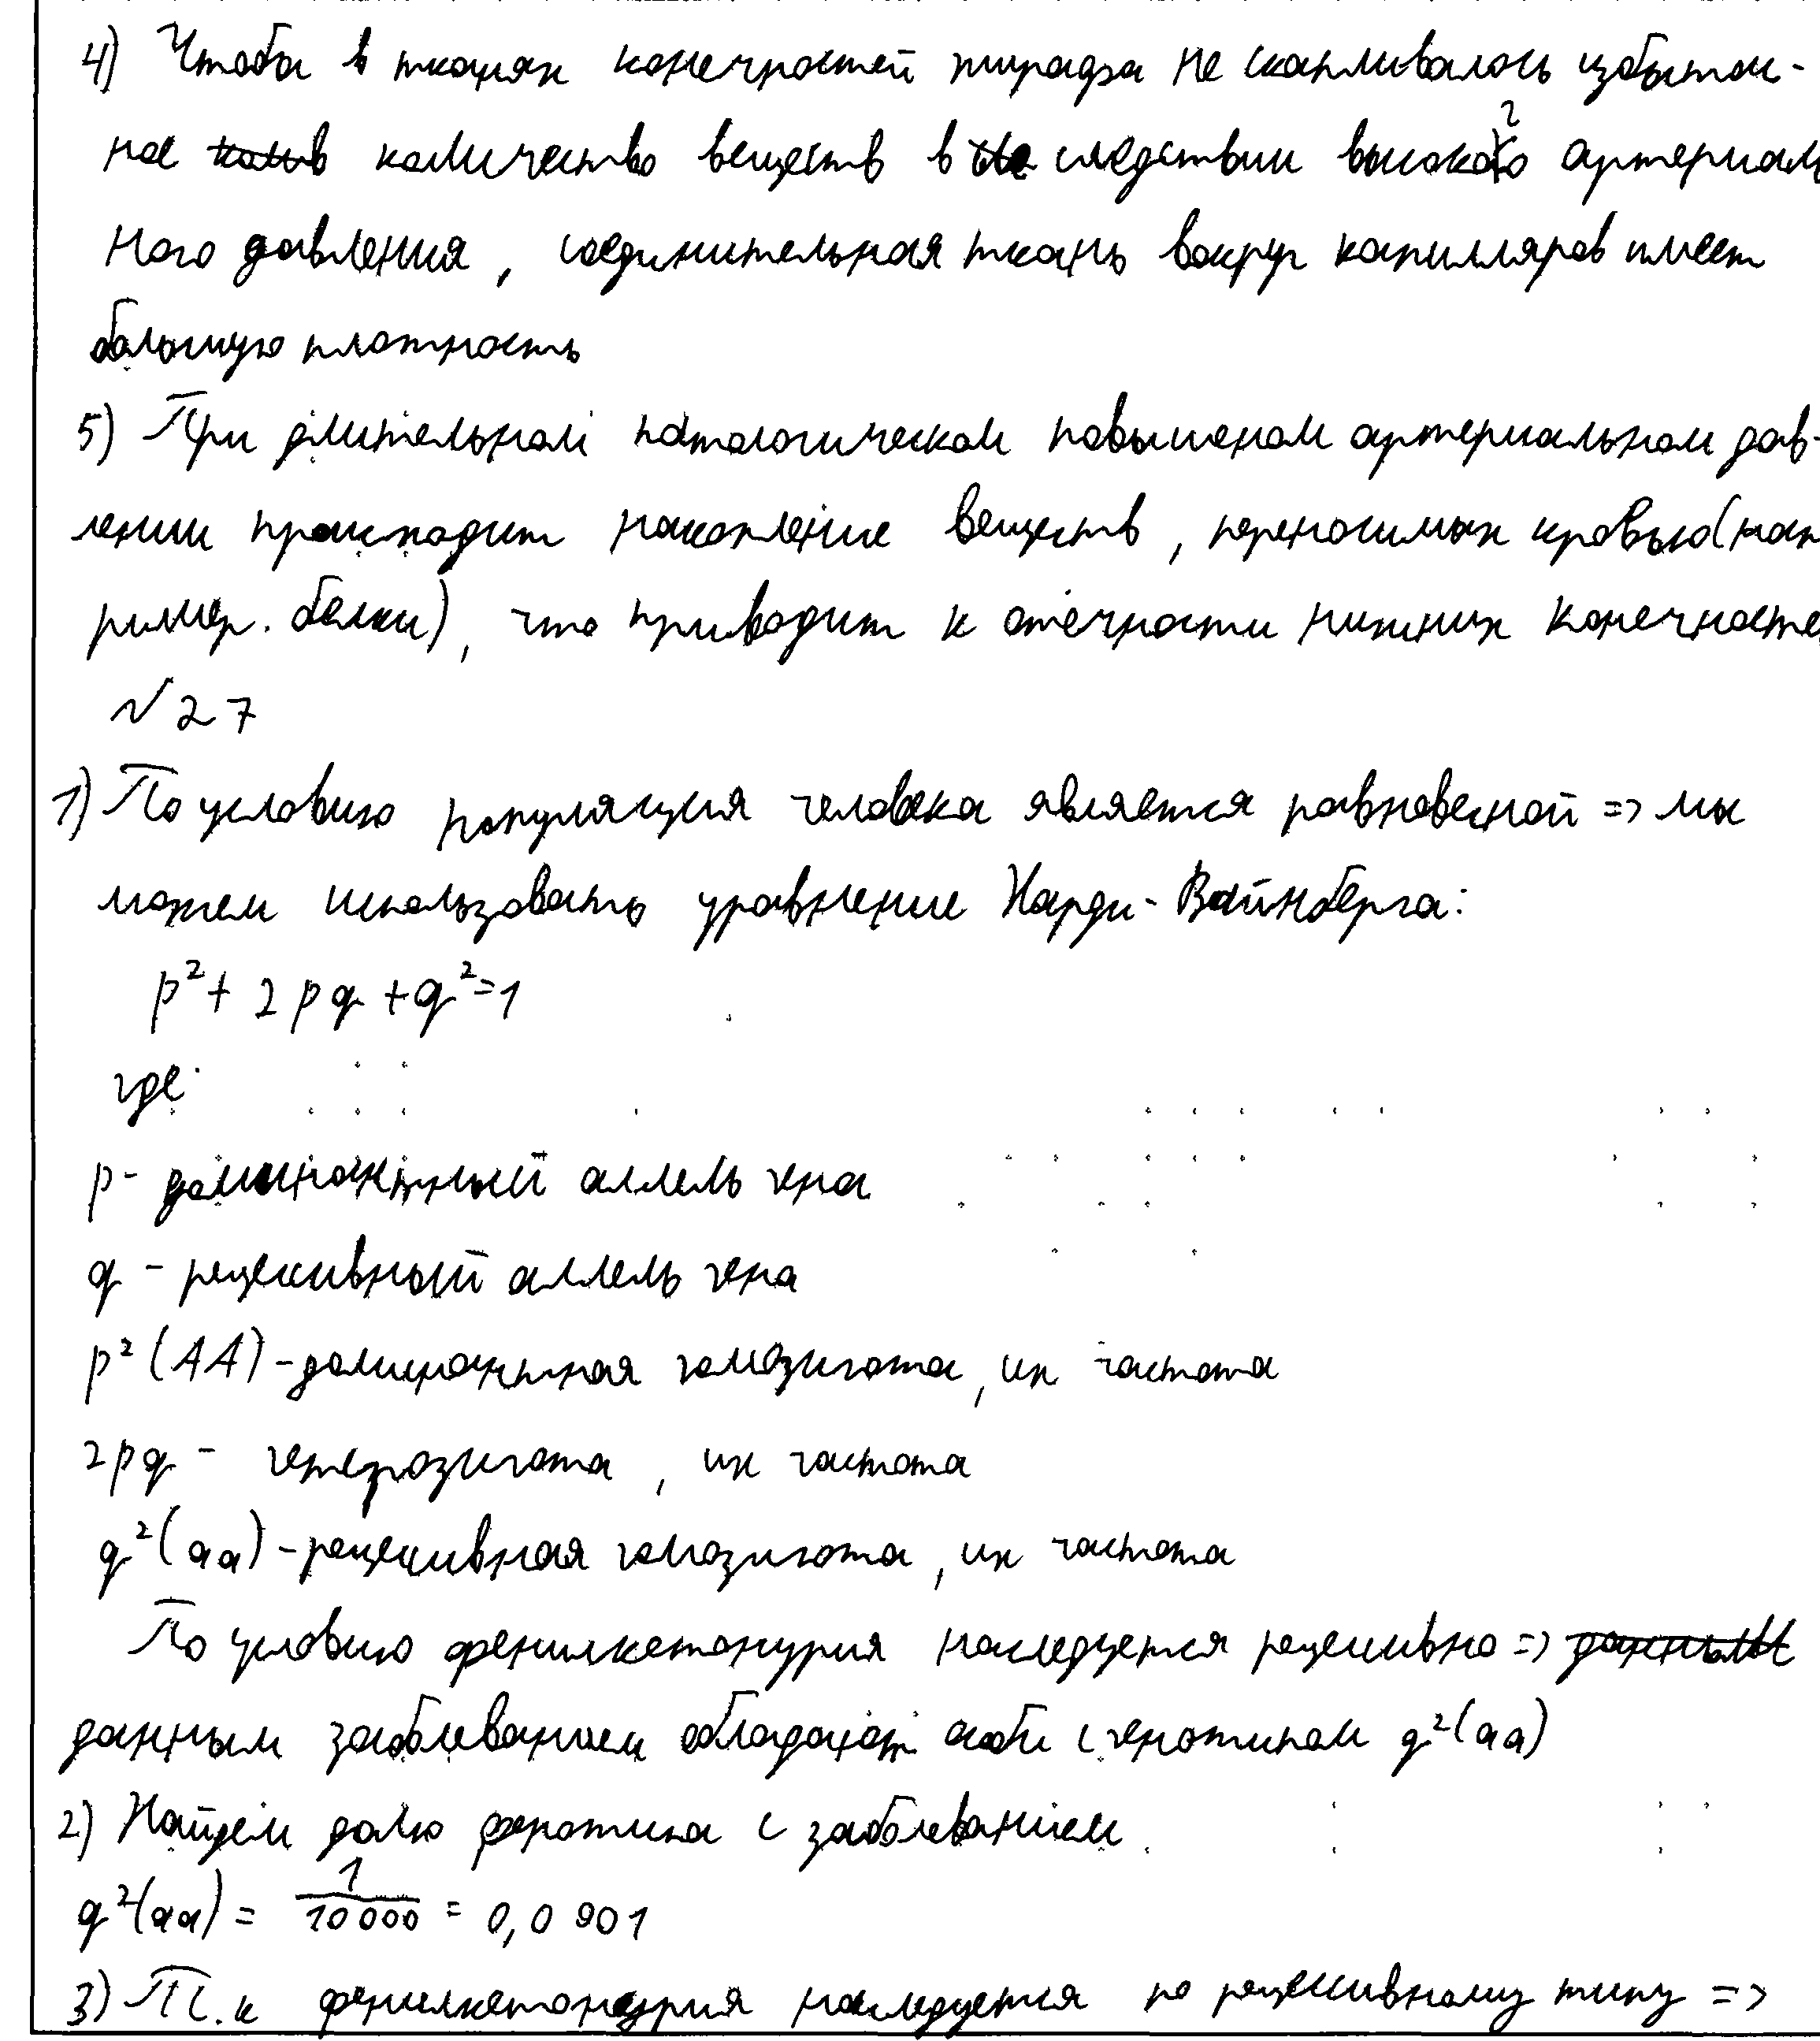 4) Чтобы в тканях конечностей жирафа не скапливалось избыточ-
ное количество веществ в следствии высокого артериаль
ного давления, соединительная ткань вокруг капилляров имеет
большую плотность
5) При длительном патологическом повышеном артериальном дав-
лении происходит накопление веществ, переносимых кровью (нап
ример. белки), что приводит к отёчности нижних конечносте
№27
1) По условию популяция человека является равновесной => мы
можем использовать уравнение Харди-Вайнберга:
p²+ 2pq+q²=1
где:
p- доминантный аллель гена
q - рецессивный аллель гена
p²(AA)-доминантная гомозигота, их частота
2pq - гетерозигота, их частота
q²(aa)-рецесивная гомозигота, их частота
По условию фенилкетонурия наследуется рецесивно =>
данным заоблеванием обладают особи с генотипом q²(aa)
2) Найдём долю фенотипа с заболеванием.
q²(aa) = 1/10000 = 0,0001
3) Т.к фенилкетонурия наследуется по рецесивному типу =>